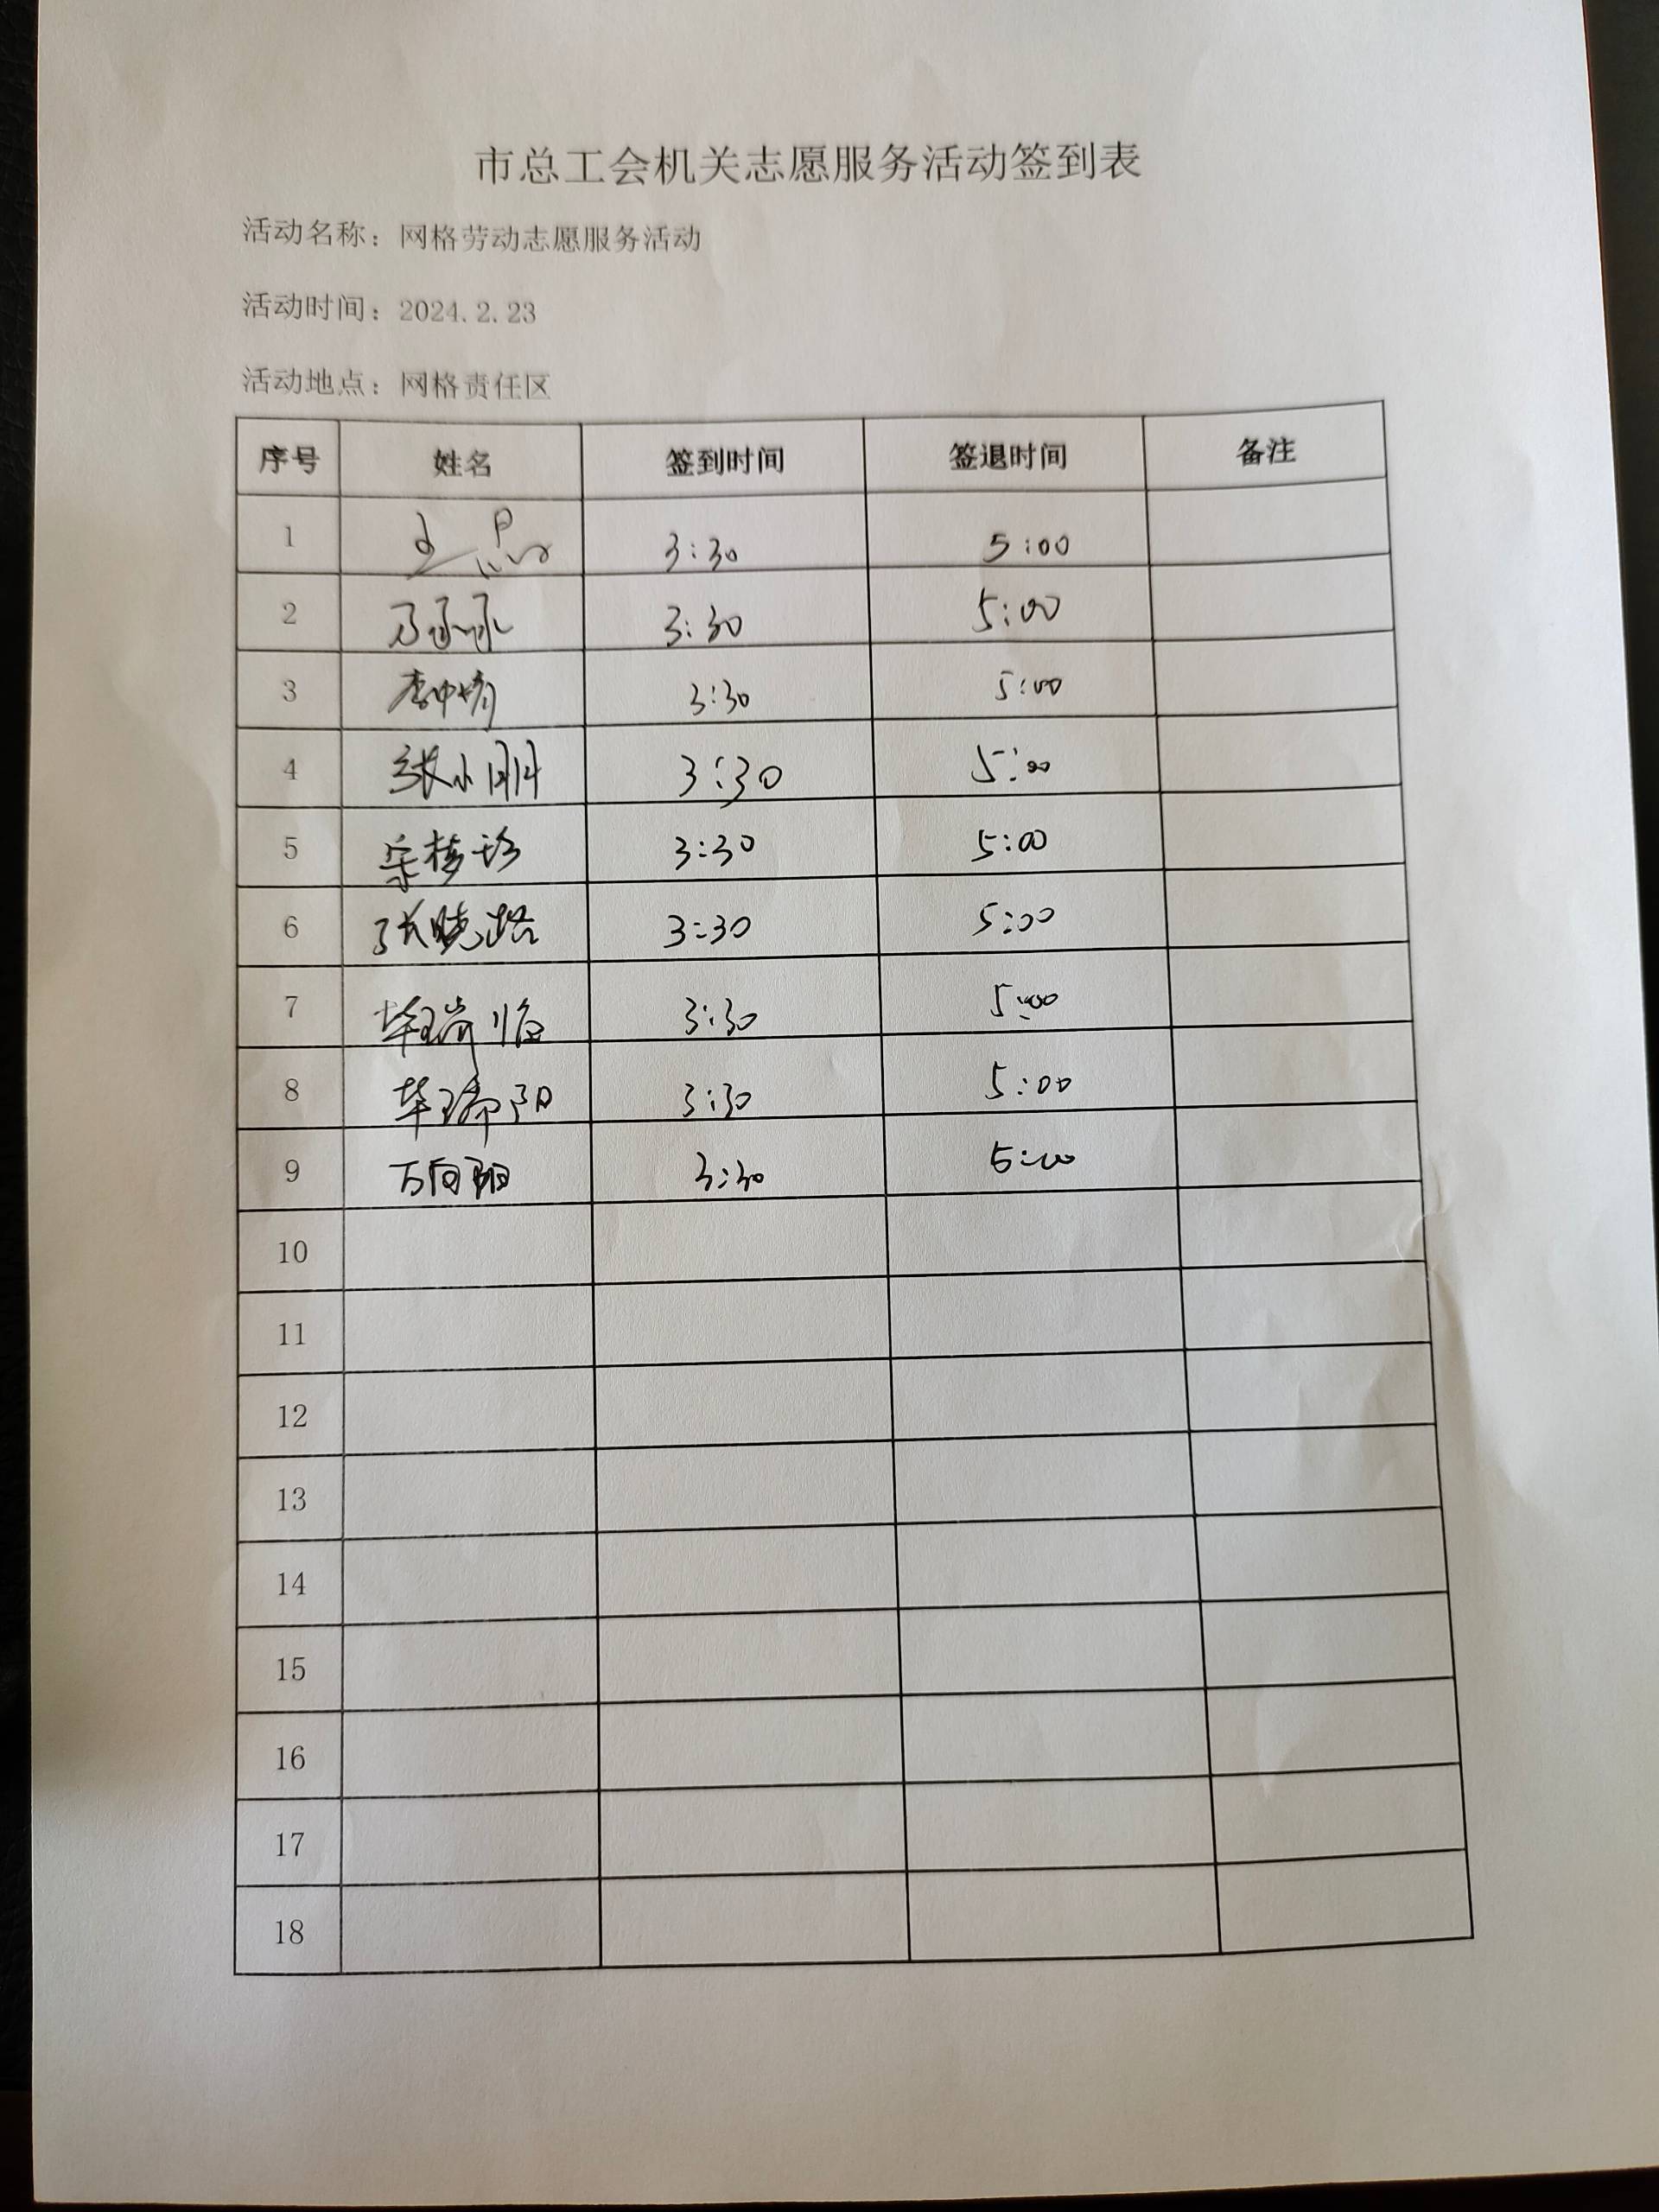 市总工会机关志愿服务活动签到表
活动名称：网格劳动志愿服务活动
活动时间：2024.2.23
活动地点：网格责任区
序号 姓名 签到时间 签退时间 备注
1 3:30 5:00
2 3:30 5:00
3 3:30 5:00
4 张小明 3:30 5:00
5 3:30 5:00
6 张晓璐 3:30 5:00
7 3:30 5:00
8 毕瑞阳 3:30 5:00
9 万向阳 3:30 5:00
10
11
12
13
14
15
16
17
18